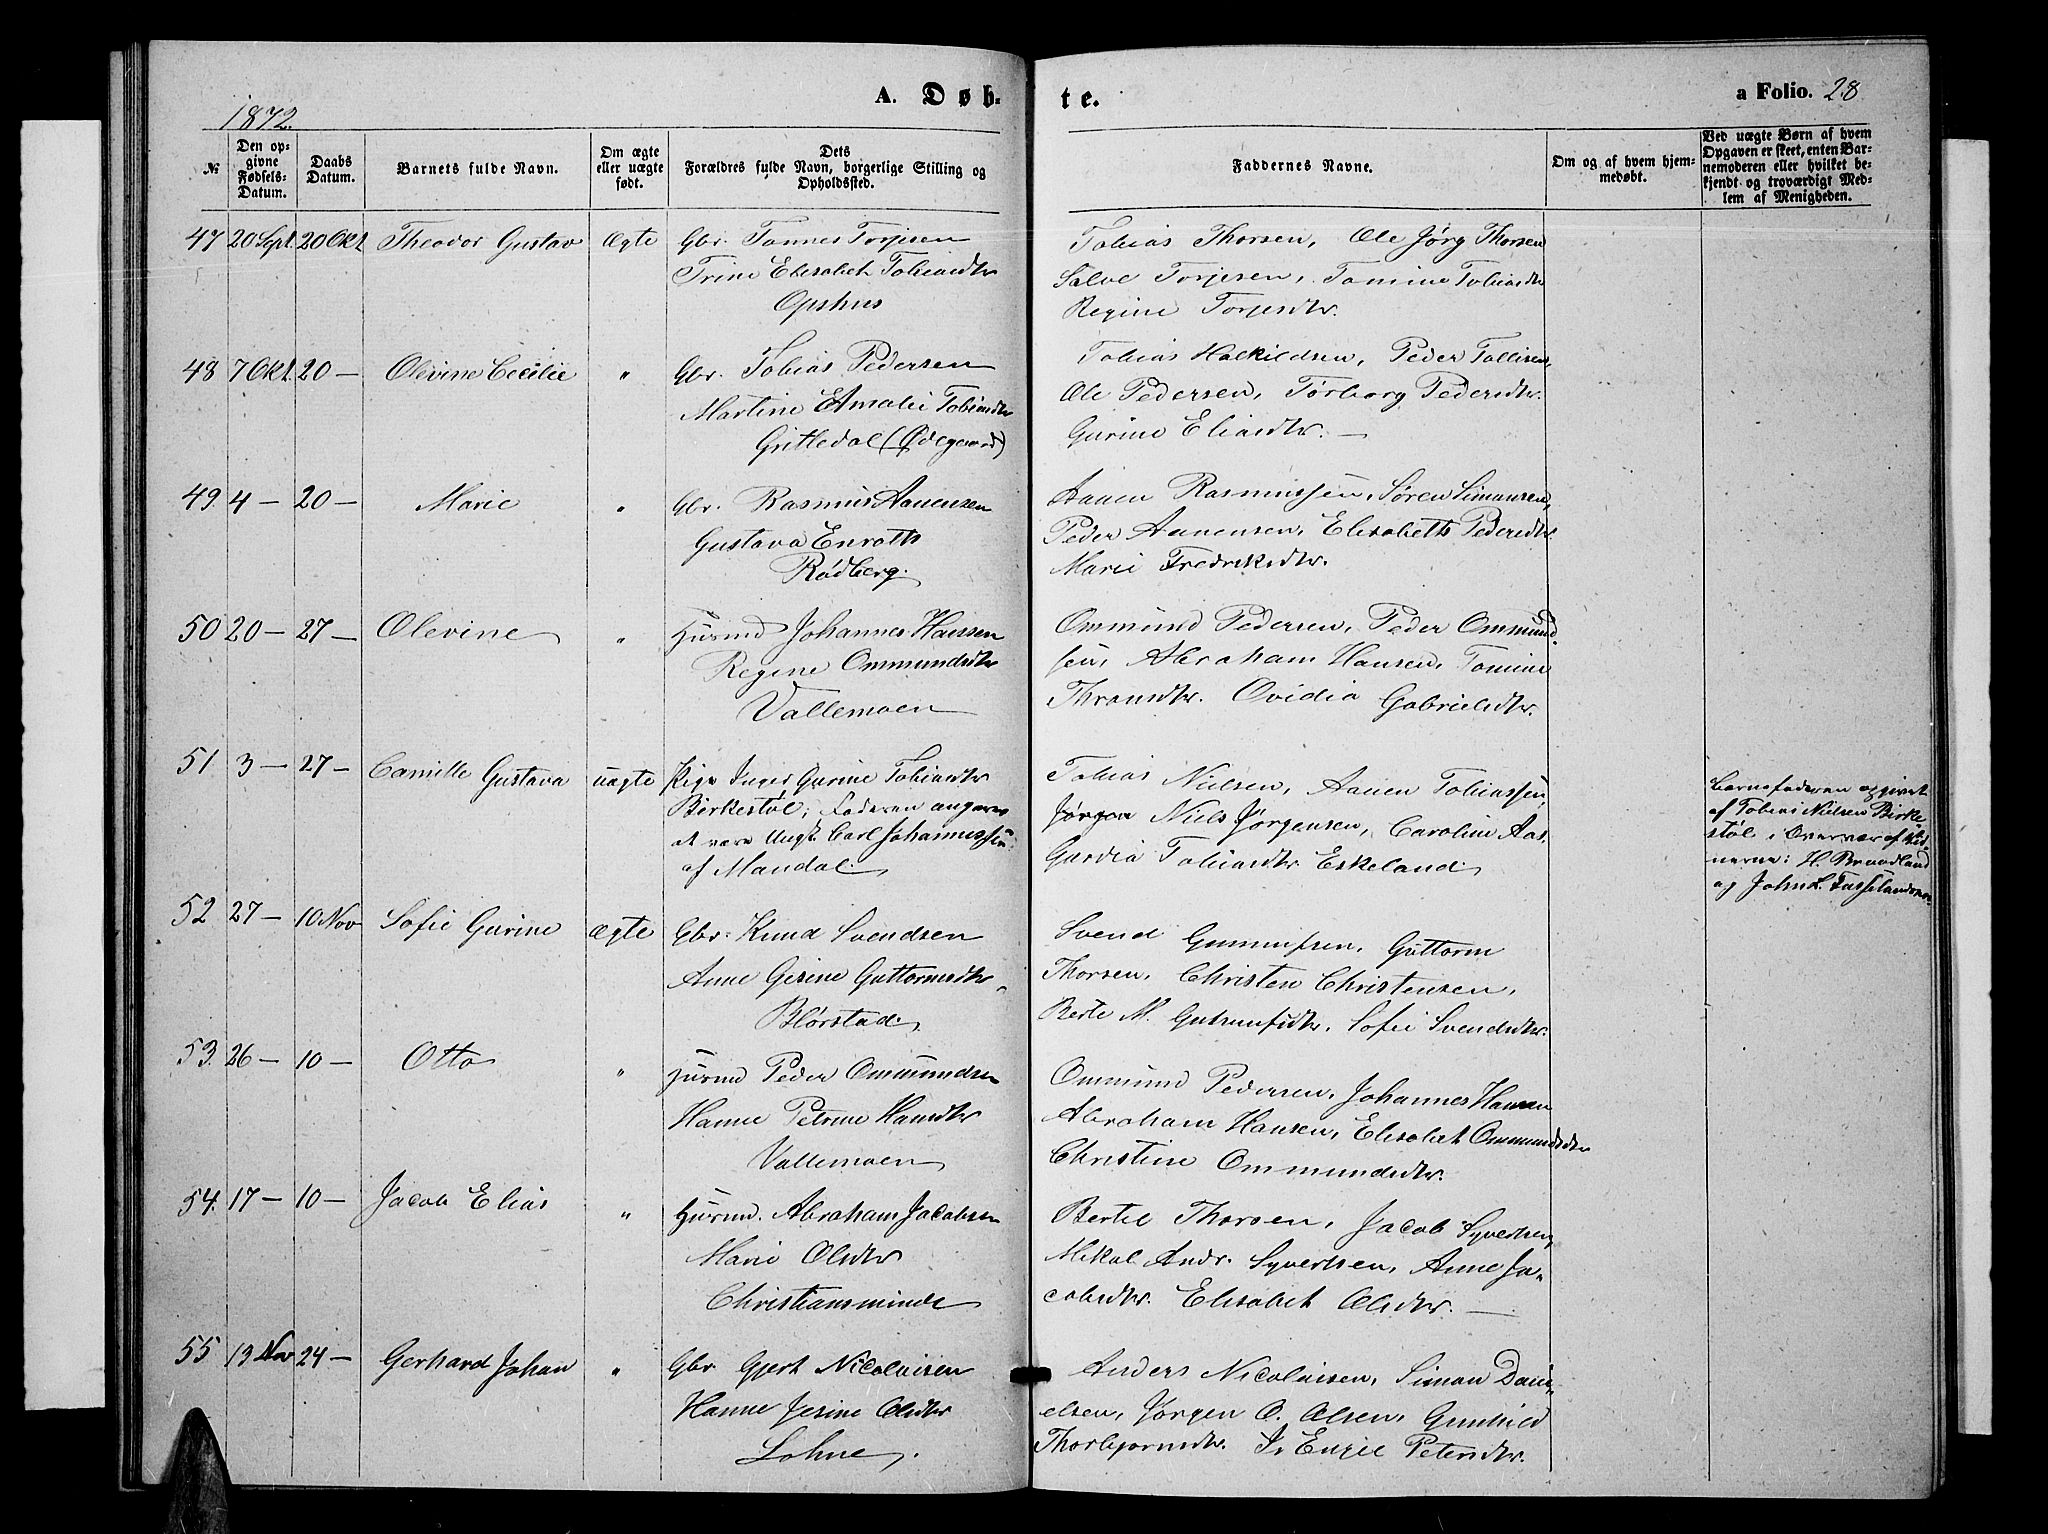 1872.
A. Døb-
te.
a Folio. 28
№
Den op-
givne
Fødsels-
Datum.
Daabs
Datum.
Barnets fulde Navn.
Om ægte
eller uægte
født.
Dets
Forældres fulde Navn, borgerlige Stilling og
Opholdssted.
Faddernes Navne.
Om og af hvem hjem-
medøbt.
Ved uægte Børn af hvem
Opgaven er skeet, enten Bar-
nemoderen eller hvilket be-
kjendt og troværdigt Med-
lem af Menigheden.
47 20 Sept. 20 Okt Theodor Gustav Ægte Gbr. Tønnes Torjesen
Trine Elisabet Tobiasdtr
Opshus
Tobias Thorsen, Ole Jørg Thorsen
Salve Torjesen, Tomine Tobiasdtr
Regine Torjesdtr.
48 7 Okt. 20 — Olevine Cecilie " Gbr. Tobias Pedersen
Martine Amalie Tobiasdtr
Gritledal (Ødegaard)
Tobias Halkildsen, Peder Tollisen,
Ole Pedersen, Torborg Pedersdtr.
Gurine Eliasdtr. —
49. 4 — 20 — Marie " Gbr. Rasmus Aanensen
Gustava Enroth
Rødberg.
Aanen Rasmussen, Søren Simonsen,
Peder Aanensen, Elisabeth Pedersdtr.
Marie Fredriksdtr.
50 20 — 27 — Olevine " Husmd Johannes Hansen
Regine Ommundsdtr
Vallemoen
Ommund Pedersen, Peder Ommund-
sen, Abraham Hansen, Tomine
Thronsdtr. Ovidia Gabrielsdtr.
51 3 — 27 — Camille Gustava uægte Pige Inger Gurine Tobiasdtr
Birkestøl; Faderen angives
at være Ungk. Carl Johannessen
af Mandal.
Tobias Nielsen, Aanen Tobiassen,
Jørgen Niels Jørgensen, Caroline Aas-
Gurdia Tobiasdtr Eskeland
Barnefaderen opgivet
af Tobias Nielsen Birke-
støl i Overvær af Vid-
nerne: H. Braadland
og John L.
52 27 — 10 Nov Sofie Gurine Ægte Gbr. Knud Svendsen
Anne Gesine Guttormsdtr.
Blørstad.
Svend Gunnufsen, Guttorm
Thorsen, Christen Christensen,
Berte M. Sofie Svendsdtr.
53. 26 — 10 — Otto " Husmd Peder Ommundsen
Hanne Petrine Hansdtr
Vallemoen
Ommund Pedersen, Johannes Hansen
Abraham Hansen, Elisabet Ommundsdtr
Christine Ommundsdtr.
54. 17 — 10 — Jacob Elias " Husmd. Abraham Jacobsen
Marie Olsdtr
Christiansminde
Bertel Thorsen, Jacob Syvertsen,
Mikal Andr. Syvertsen, Anne Ja-
cobsdtr. Elisabet Olsdtr. —
55 13 Nov 24 — Gerhard Johan " Gbr Gjert Nicolaisen
Hanne Jesine Olsdtr
Lohne.
Anders Nicolaisen, Simon Dani-
elsen, Jørgen O. Olsen, Gunhild
Thorbjørnsdtr. Engel Petersdtr.